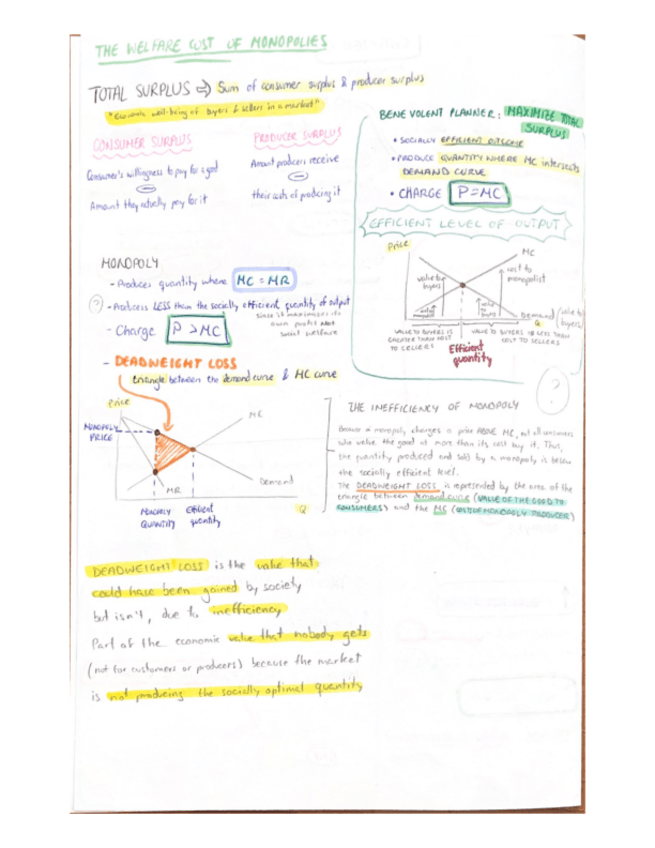 THE WELFARE COST OF MONOPOLIES
TOTAL SURPLUS => Sum of consumer surplus & producer surplus
"Economic well-being of buyers & sellers in a market"
CONSUMER SURPLUS
Consumer's willingness to pay for a good
−
Amount they actually pay for it
PRODUCER SURPLUS
Amount producers receive
−
their costs of producing it
BENEVOLENT PLANNER: MAXIMIZE TOTAL
SURPLUS
• SOCIALLY EFFICIENT OUTCOME
• PRODUCE QUANTITY WHERE MC intersects
DEMAND CURVE
• CHARGE P=MC
EFFICIENT LEVEL OF OUTPUT
Price
MC
value to
buyers
cost to
monopolist
cost to
monopolist
value to
buyers
Demand (value to
buyers)
Q
VALUE TO BUYERS IS
GREATER THAN COST
TO SELLERS
VALUE TO BUYERS IS LESS THAN
COST TO SELLERS
Efficient
quantity
MONOPOLY
- Produces quantity where MC = MR
? - Produces LESS than the socially efficient quantity of output
since it maximizes its
own profit not
social welfare
- Charge P > MC
- DEADWEIGHT LOSS
triangle between the demand curve & MC curve
Price
MONOPOLY
PRICE
MC
Demand
MR
Q
MONOPOLY
QUANTITY
Efficient
quantity
?
THE INEFFICIENCY OF MONOPOLY
Because a monopoly charges a price ABOVE MC, not all consumers
who value the good at more than its cost buy it. Thus,
the quantity produced and sold by a monopoly is below
the socially efficient level.
The DEADWEIGHT LOSS is represented by the area of the
triangle between demand curve (VALUE OF THE GOOD TO
CONSUMERS) and the MC (COSTS OF MONOPOLY PRODUCER)
DEADWEIGHT LOSS is the value that
could have been gained by society
but isn't, due to inefficiency
Part of the economic value that nobody gets
(not for customers or producers) because the market
is not producing the socially optimal quantity